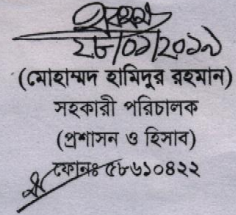 ২৮/০১/২০১৯
(মোহাম্মদ হামিদুর রহমান)
সহকারী পরিচালক
(প্রশাসন ও হিসাব)
ফোনঃ ৫৮৬১০৪২২